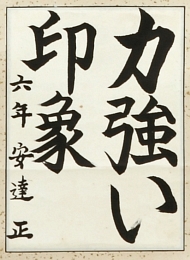 力強い
印象
六年 安達 正